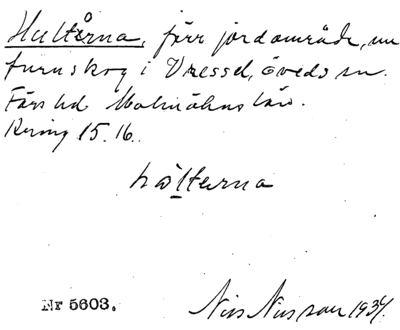 Hultårna, förr jordområde, nu
furuskog i Vressel, Öveds sn.
Färs hd Malmöhus län.
Kering 15. 16.
hòlterna
Nr 5603.
Nils Nilsson 1934.